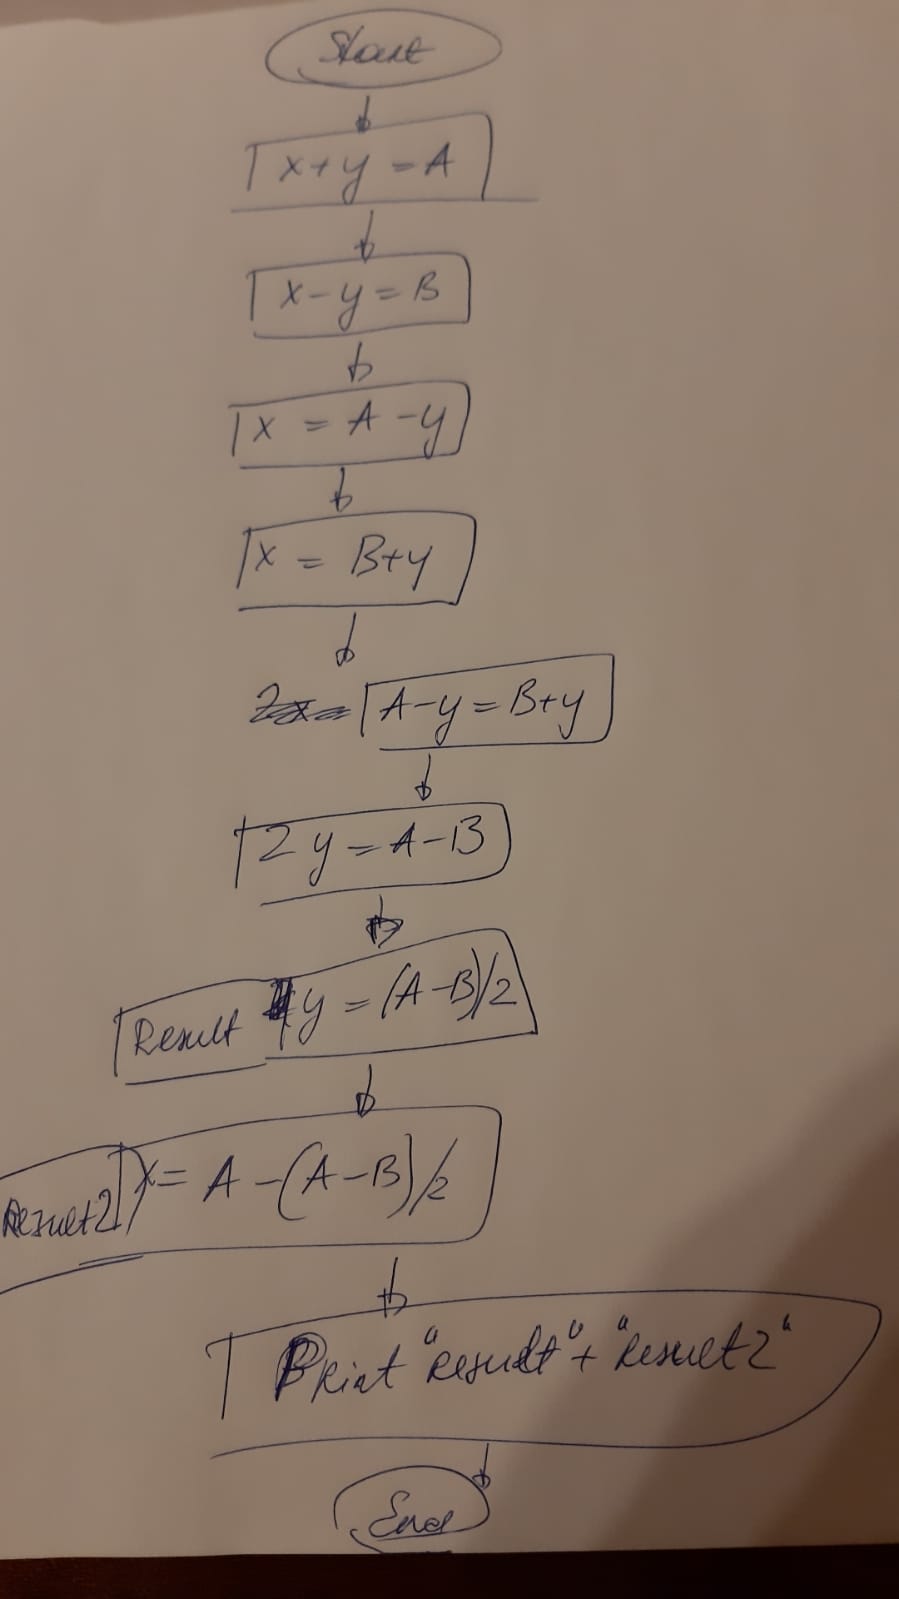 Start
x+y = A
x-y = B
x = A -y
x = B+y
A-y = B+y
2y = A-B
Result y = (A-B)/2
Result2 x = A -(A-B)/2
Print "result" + "Result2"
End